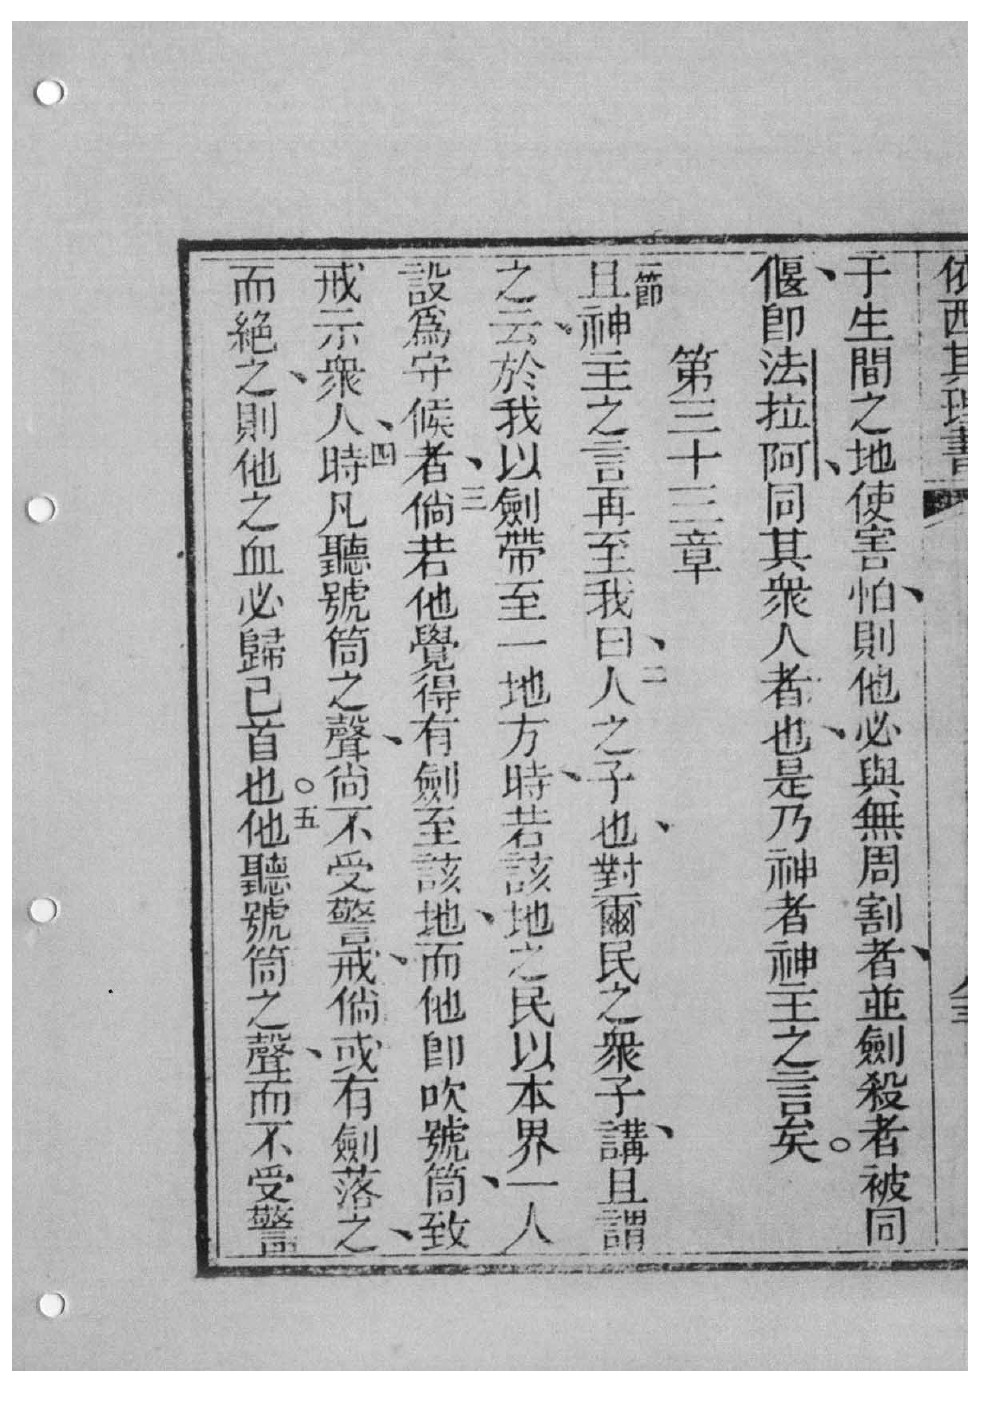 依西其理書
于生間之地使害怕、則他必與無周割者、並劍殺者被同
偃、卽法拉阿、同其衆人者也、是乃神者神主之言矣。
第三十三章
一節且神主之言再至我曰、二人之子也、對爾民之衆子講、且謂
之云、於我以劍帶至一地方時、若該地之民以本界一人
設爲守候者、三倘若他覺得有劍至該地、而他卽吹號筒、致
戒示衆人時、四凡聽號筒之聲、尚不受警戒、倘或有劍落之、
而絕之、則他之血必歸己首也。五他聽號筒之聲、而不受警